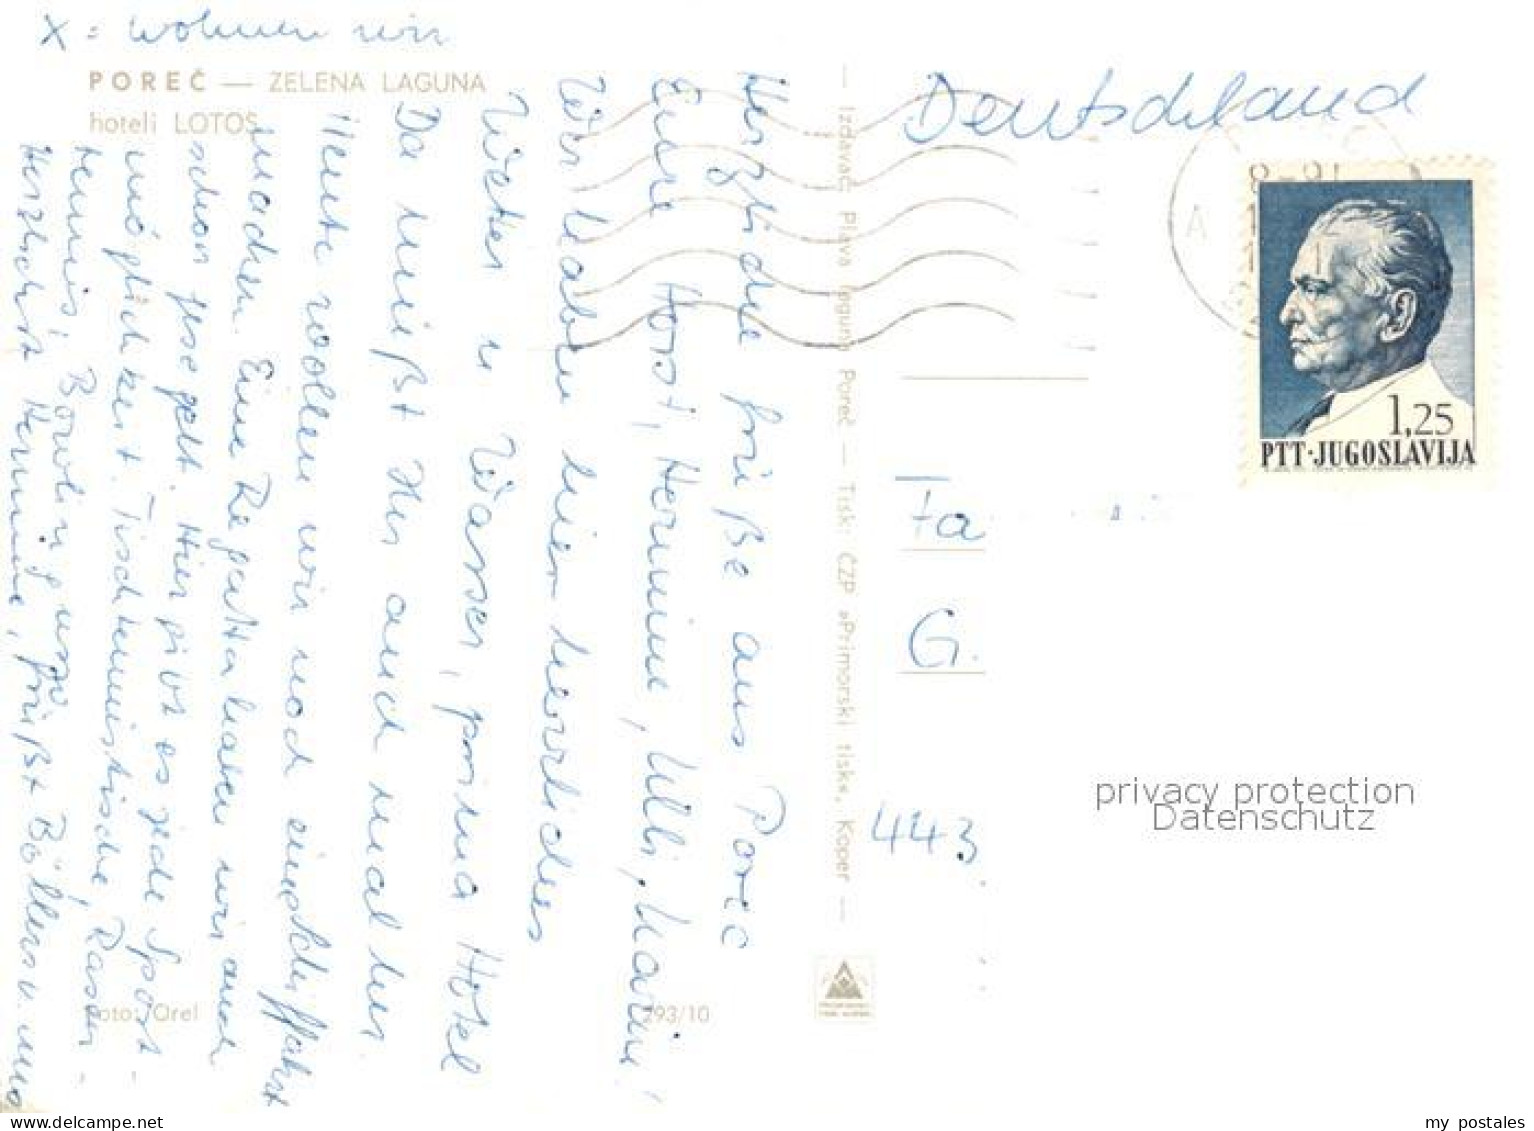 X = wohnen wir
POREČ — ZELENA LAGUNA
hoteli LOTOS
Herzliche Grüße aus Poreč
Eure Horst, Hermine, Ulli, Karin!
Wir haben hier herrliches
Wetter u. Wasser, prima Hotel
Da müßt Ihr auch mal hin.
Heute wollen wir noch eine Schiffahrt
machen. Eine Regatta haben wir auch
schon gesegelt. Hier gibt es jede Sport-
möglichkeit. Tischtennistische, Rasen-
tennis, Bowling usw.
Herzlichst Hermine, grüßt u. uns
— Izdavač: Plava laguna Poreč — Tisk: ČZP »Primorski tisk«, Koper —
Foto: Orel
293/10
Deutschland
1,25
PTT·JUGOSLAVIJA
Fa
G.
443
privacy protection
Datenschutz
my postales